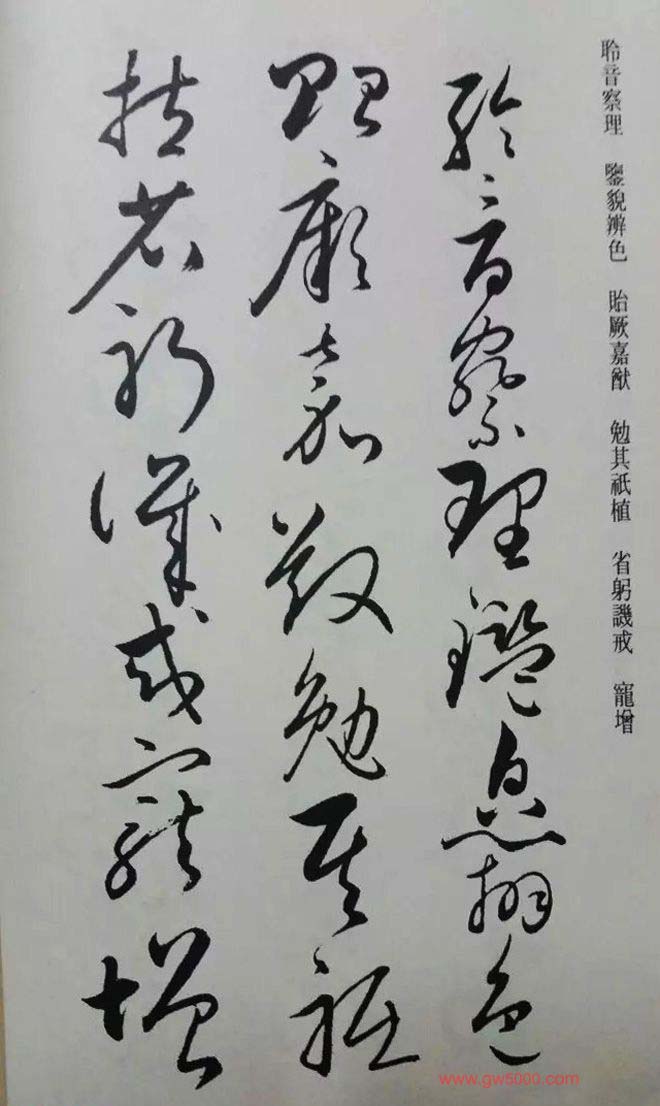 聆音察理　鑒貌辨色　貽厥嘉猷　勉其祇植　省躬譏戒　寵增
聆音察理鑑皃辨色
貽厥嘉猷勉其祇
植省躬譏戒寵增
www.gw5000.com